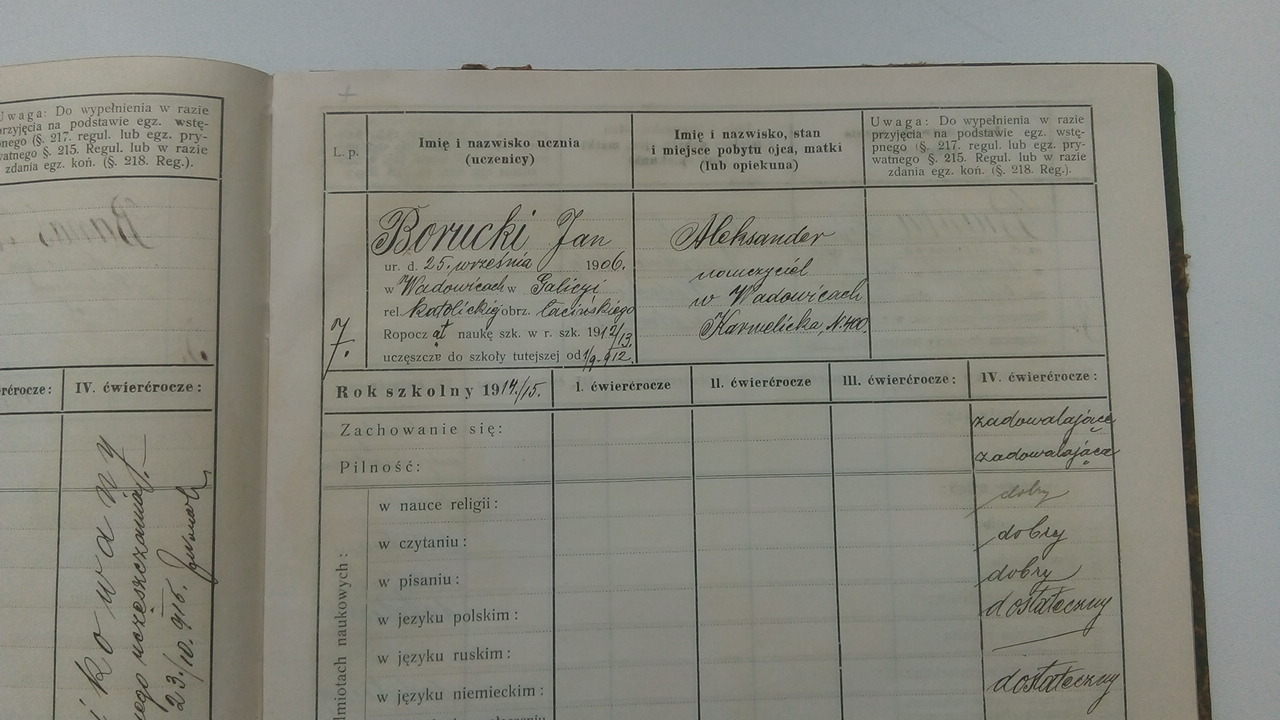 Uwaga: Do wypełnienia w razie
przyjęcia na podstawie egz. wstę-
pnego (§. 217. regul. lub egz. pry-
watnego §. 215. Regul. lub w razie
zdania egz. koń. (§. 218. Reg.).
IV. ćwierćrocze:
kowany
uczęszczania
23/10. 915.
L. p.
Imię i nazwisko ucznia
(uczenicy)
Imię i nazwisko, stan
i miejsce pobytu ojca, matki
(lub opiekuna)
Uwaga: Do wypełnienia w razie
przyjęcia na podstawie egz. wstę-
pnego (§. 217. regul. lub egz. pry-
watnego §. 215. Regul. lub w razie
zdania egz. koń. (§. 218. Reg.).
7.
Borucki Jan
ur. d. 25. września 1906.
w Wadowicach w Galicyi
rel. katolickiej obrz. łacińskiego
Ropocz ął naukę szk. w r. szk. 1912/13.
uczęszcza do szkoły tutejszej od 1/9. 912.
Aleksander
nauczyciel
w Wadowicach
Karmelicka, N. 400.
Rok szkolny 1914/15.
I. ćwierćrocze
II. ćwierćrocze
III. ćwierćrocze:
IV. ćwierćrocze:
Zachowanie się: zadowalające
Pilność: zadowalająca
w nauce religii: dobry
w czytaniu: dobry
w pisaniu: dobry
w języku polskim: dostateczny
w języku ruskim: —
w języku niemieckim: dostateczny